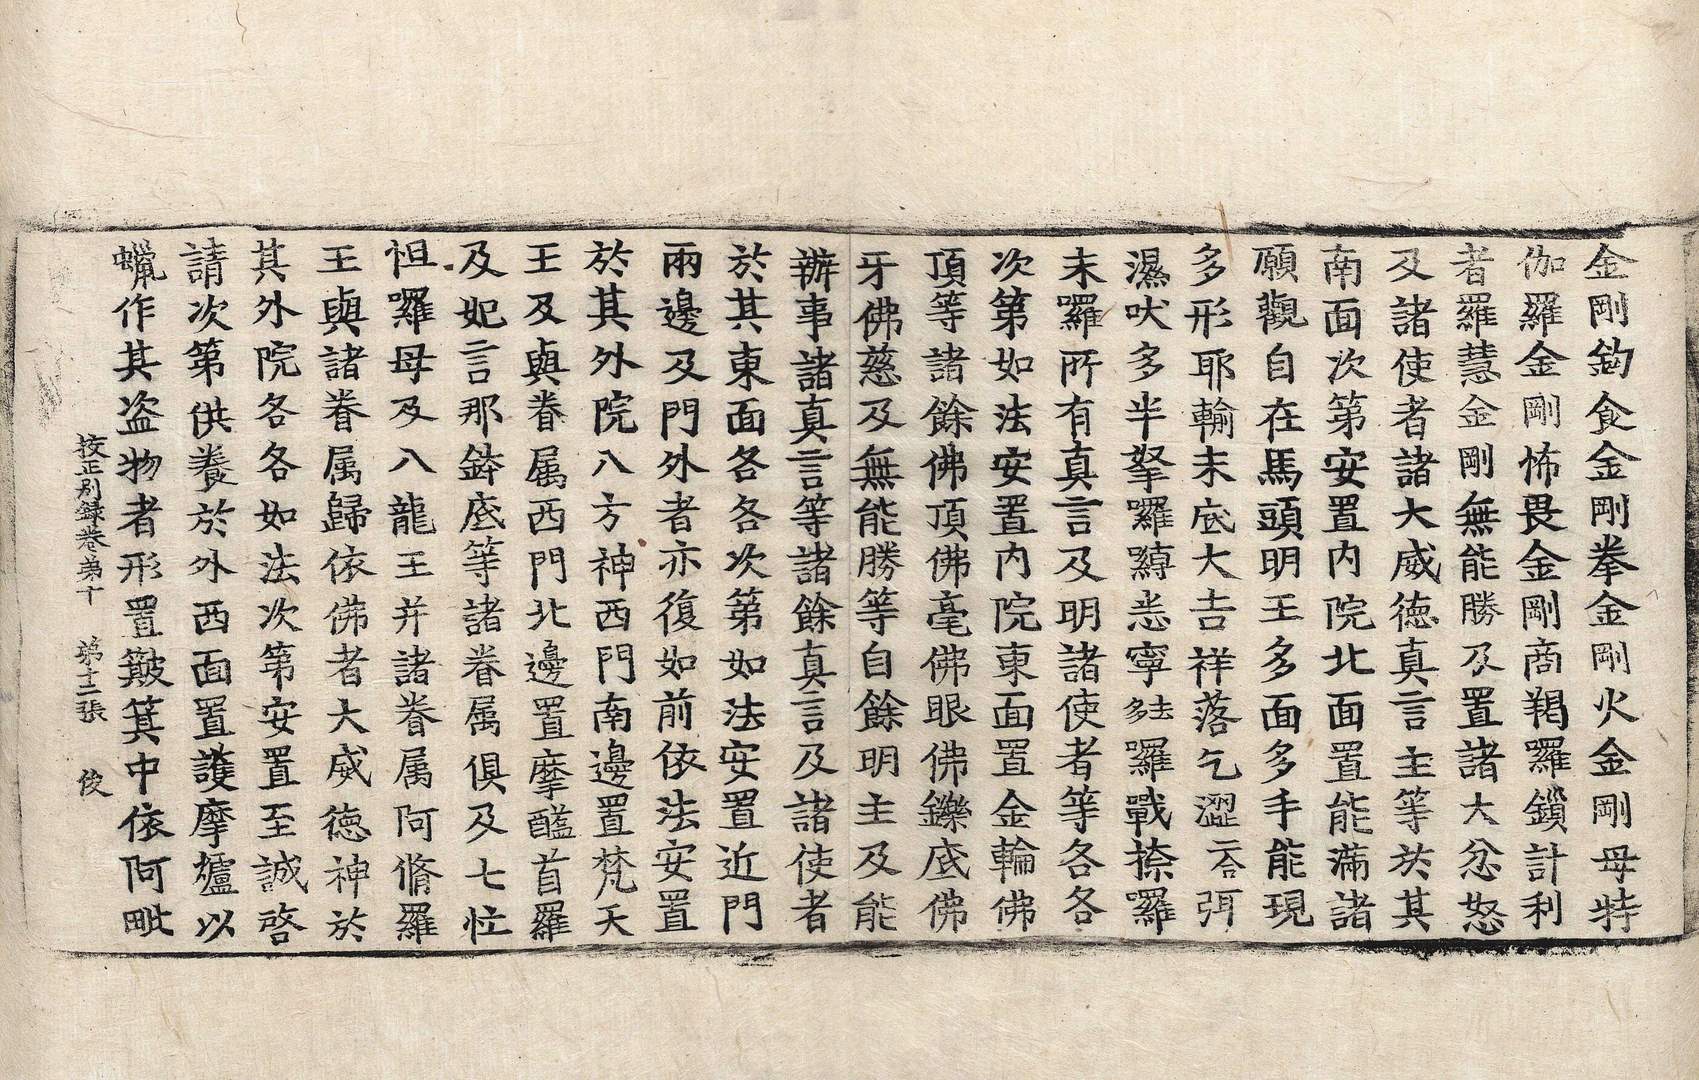 金剛鈎食金剛拳金剛火金剛母特
伽羅金剛怖畏金剛商羯羅鎖計利
者羅慧金剛無能勝及置諸大忿怒
及諸使者諸大威德真言主等於其
南面次第安置內院北面置能滿諸
願觀自在馬頭明王多面多手能現
多形耶輸末底大吉祥落乞澀二合弭
濕吠多半拏囉嚩悉寧多法囉戰捺囉
末囉所有真言及明諸使者等各各
次第如法安置內院東面置金輪佛
頂等諸餘佛頂佛毫佛眼佛鑠底佛
牙佛慈及無能勝等自餘明主及能
辦事諸真言等諸餘真言及諸使者
於其東面各各次第如法安置近門
兩邊及門外者亦復如前依法安置
於其外院八方神西門南邊置梵天
王及與眷属西門北邊置摩醯首羅
及妃言那鉢底等諸眷属俱及七忙
怛囉母及八龍王并諸眷属阿脩羅
王與諸眷属歸依佛者大威德神於
其外院各各如法次第安置至誠啓
請次第供養於外西面置護摩爐以
蠟作其盗物者形置簸箕中依阿毗
挍正别録卷第十 第十二張 俊